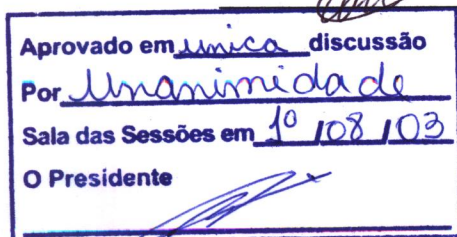 Aprovado em unica discussão
Por Unanimidade
Sala das Sessões em 1º / 08 / 03
O Presidente